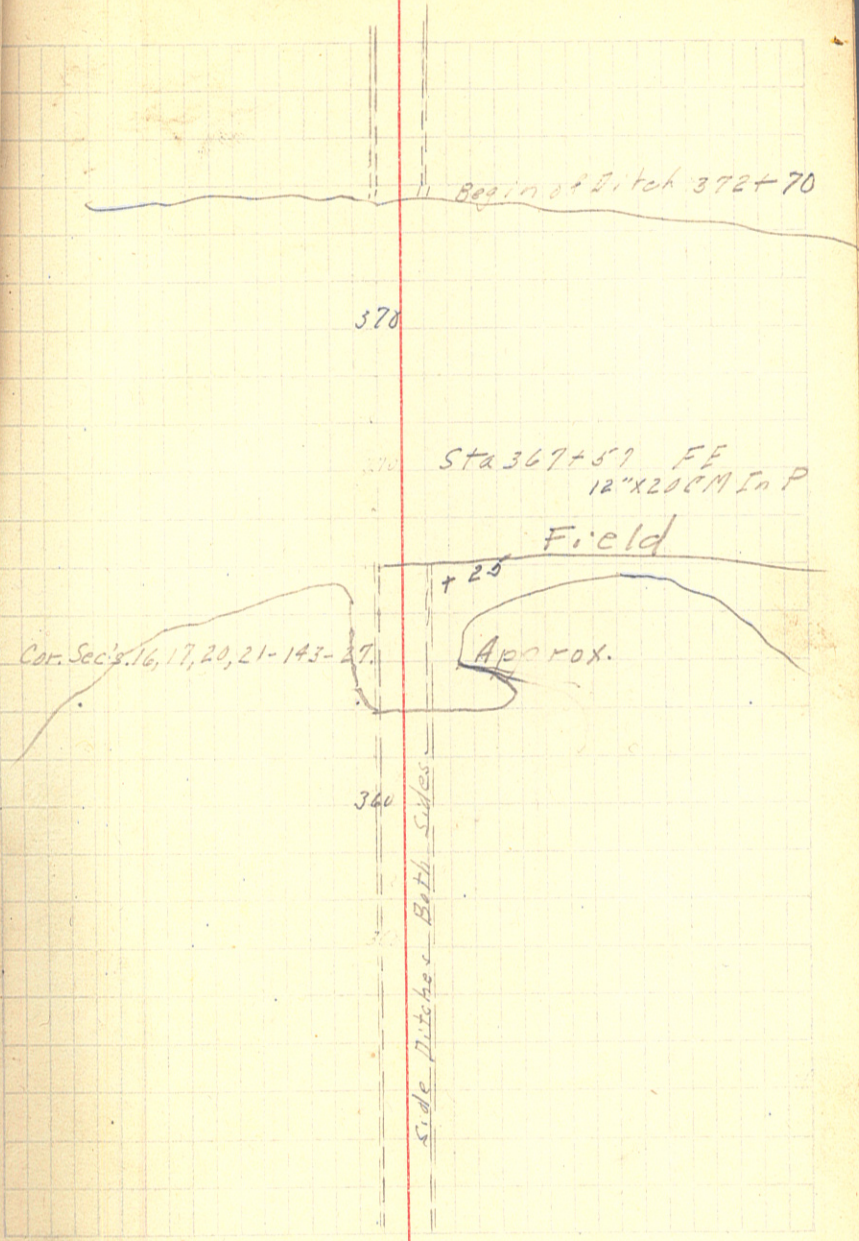 Begin of Ditch 372+70
370
Sta 367+57 FE
12"X20 CM In P
Field
+25
Cor. Sec's. 16, 17, 20, 21-143-27.
Approx.
360
Side Ditches Both Sides